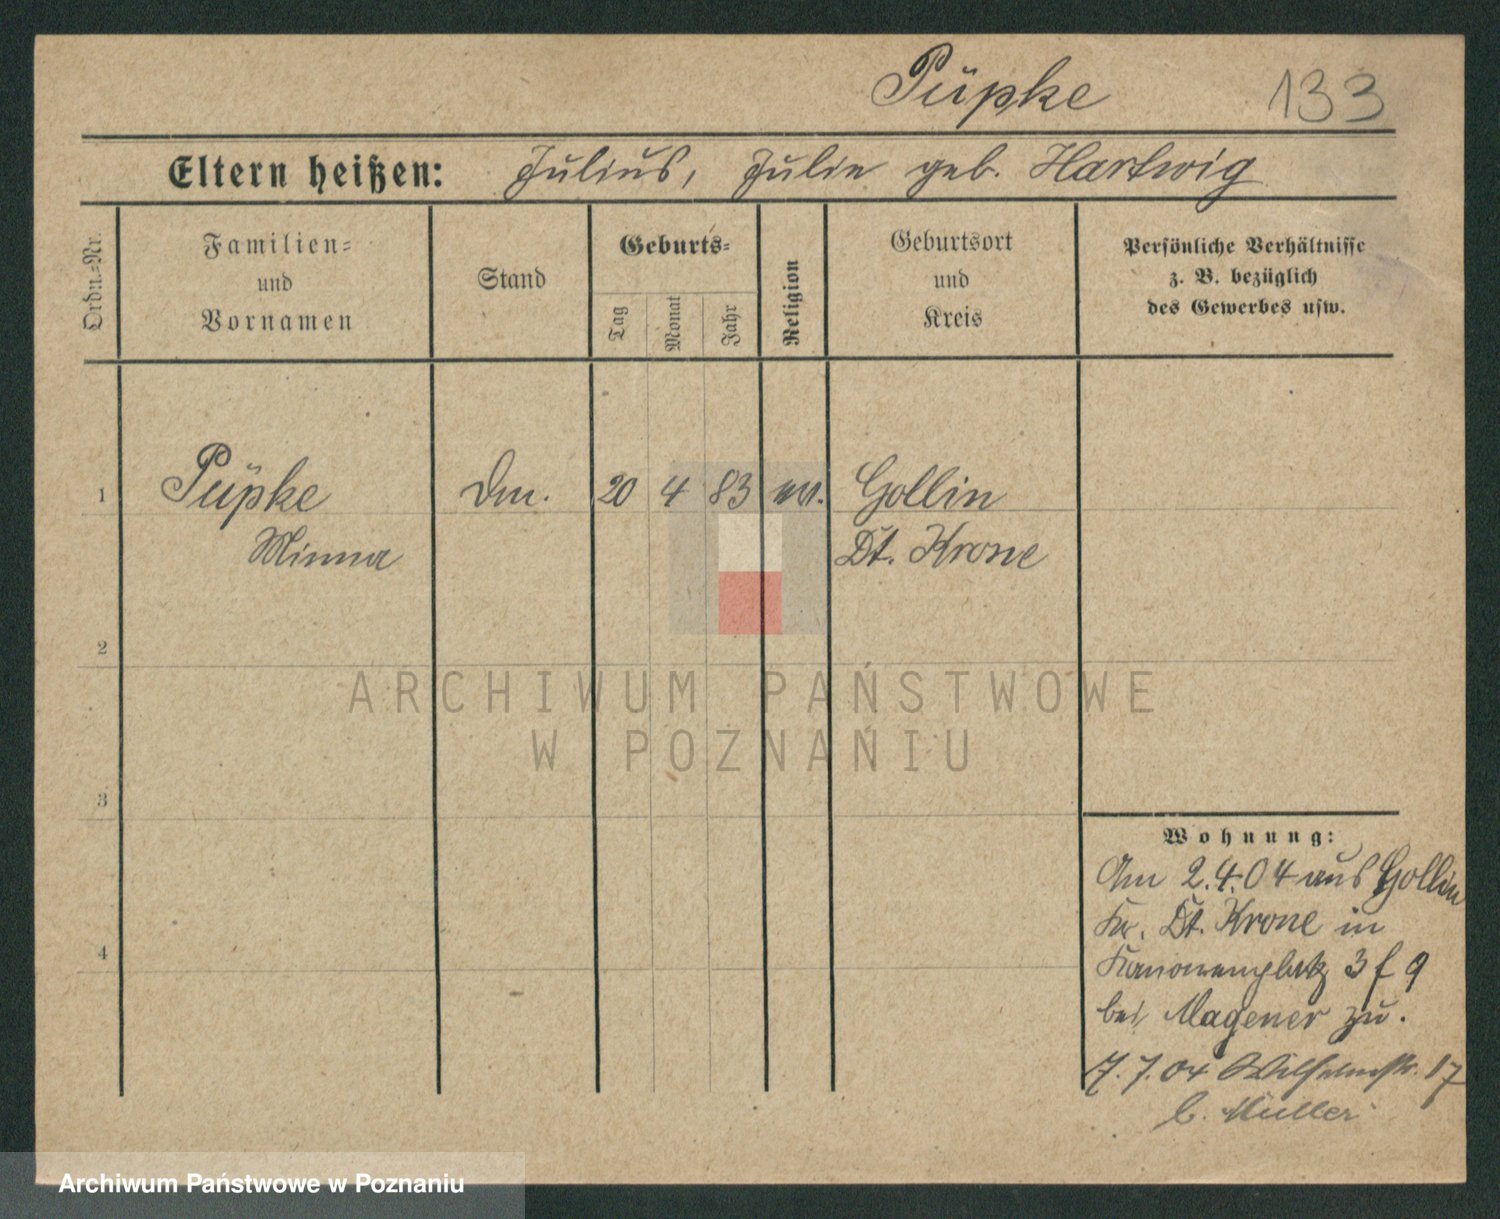 Püpke 133
Eltern heißen: Julius, Julie geb. Hartwig
Ordn.-Nr.
Familien-
und
Vornamen
Stand
Geburts-
Tag
Monat
Jahr
Religion
Geburtsort
und
Kreis
Persönliche Verhältnisse
z. B. bezüglich
des Gewerbes usw.
1 Püpke 20 4 83 ev. Gollin
Minna Dt. Krone
2
ARCHIWUM PAŃSTWOWE
W POZNANIU
3
Wohnung:
Am 2.4.04 aus Gollin
Kr. Dt. Krone in
Kanonenplatz 3 f 9
bei Magener zu.
7.7.04 Wilhelmstr. 17
b. Müller
4
Archiwum Państwowe w Poznaniu